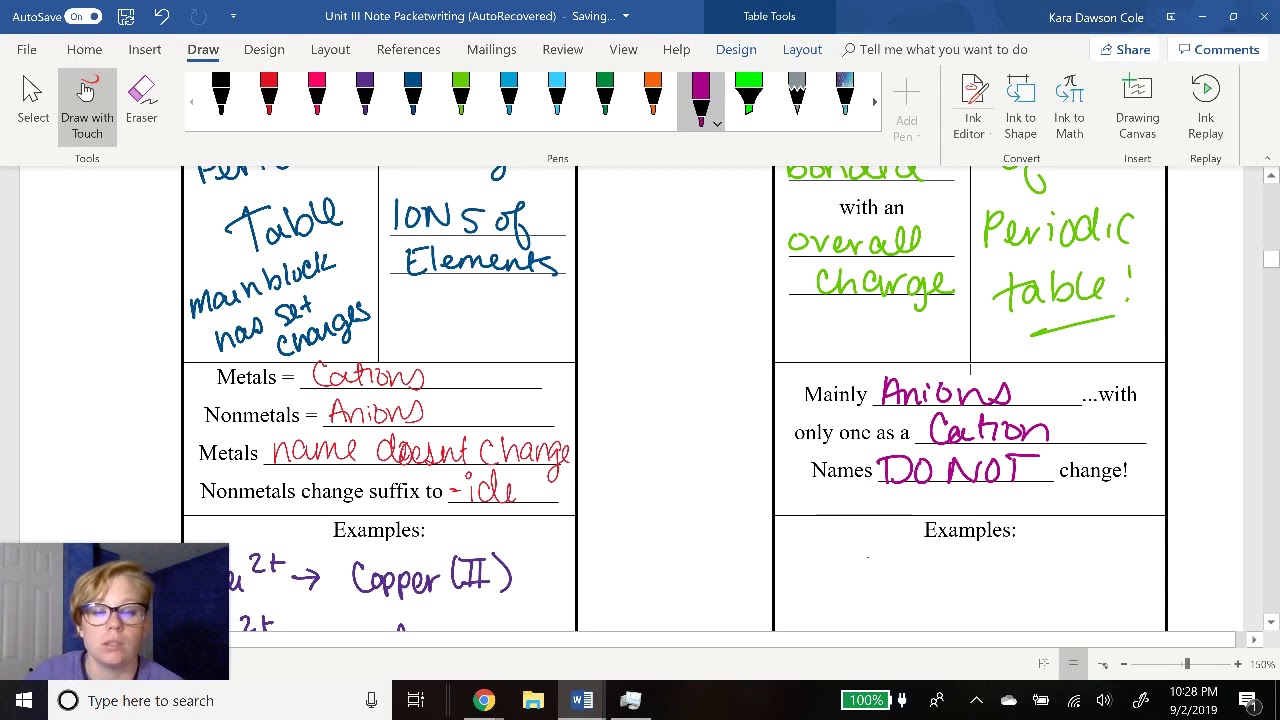 AutoSave On Unit III Note Packetwriting (AutoRecovered) - Saving... Table Tools Kara Dawson Cole
File Home Insert Draw Design Layout References Mailings Review View Help Design Layout Tell me what you want to do Share Comments
Select Draw with Touch Eraser Add Pen Ink Editor Ink to Shape Ink to Math Drawing Canvas Ink Replay
Tools Pens Convert Insert Replay
Table
main block
has set
charges
IONS of
Elements
Metals = Cations
Nonmetals = Anions
Metals name doesnt change
Nonmetals change suffix to -ide
Examples:
2+ → Copper (II)
2+
bonded
with an
overall
charge
of
Periodic
table!
Mainly Anions ...with
only one as a Cation
Names DO NOT change!
Examples:
150%
Type here to search 100% 10:28 PM
9/2/2019